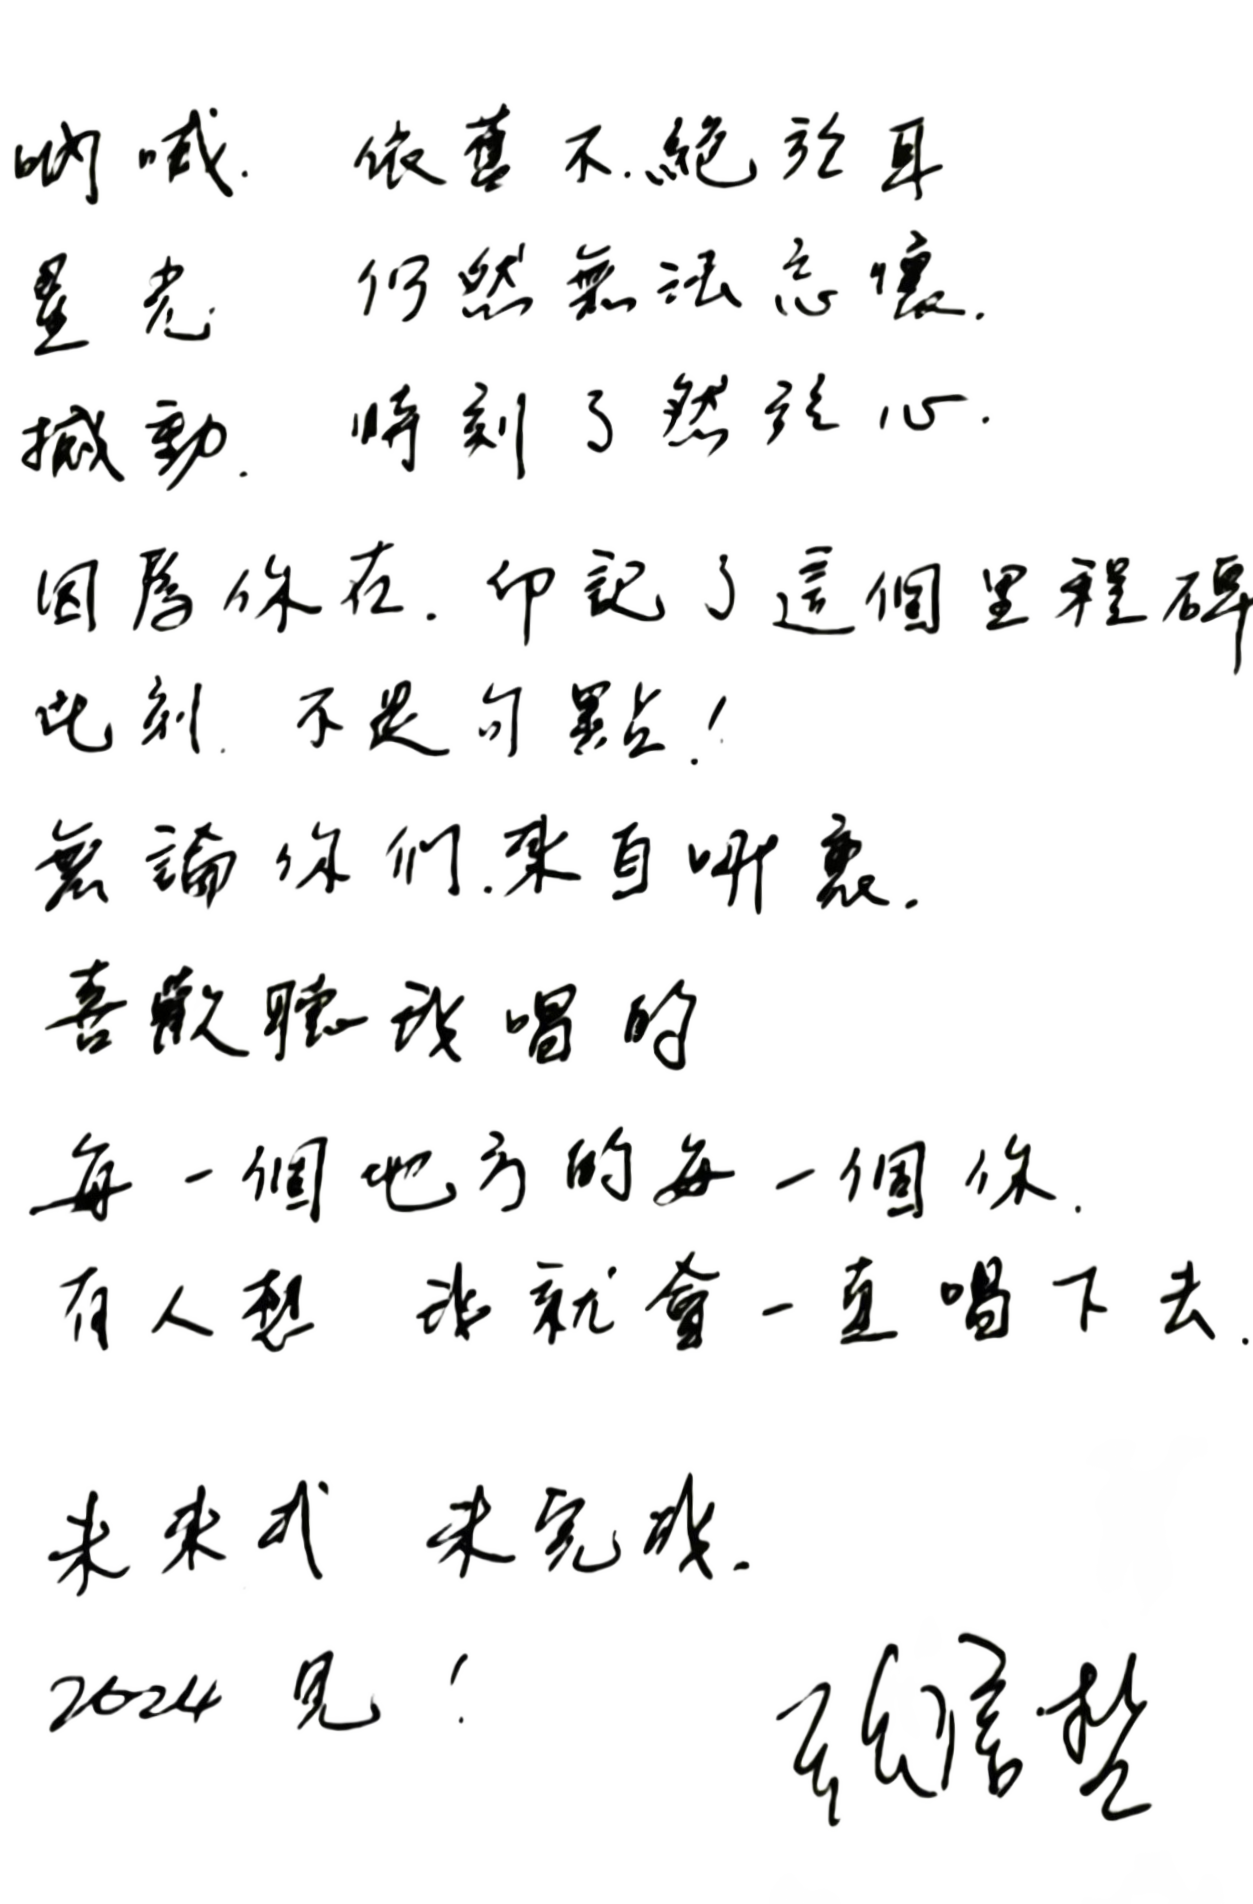 吶喊. 依舊不.絕於耳
星光 仍然無法忘懷.
撼動. 時刻了然於心.
因為你在. 印記了這個里程碑
此刻. 不是句點.!
無論你們.來自哪裏.
喜歡聽我唱的
每一個地方的每一個你.
有人想 我就會一直唱下去.
未來式 未完成.
2024 見!
張信哲